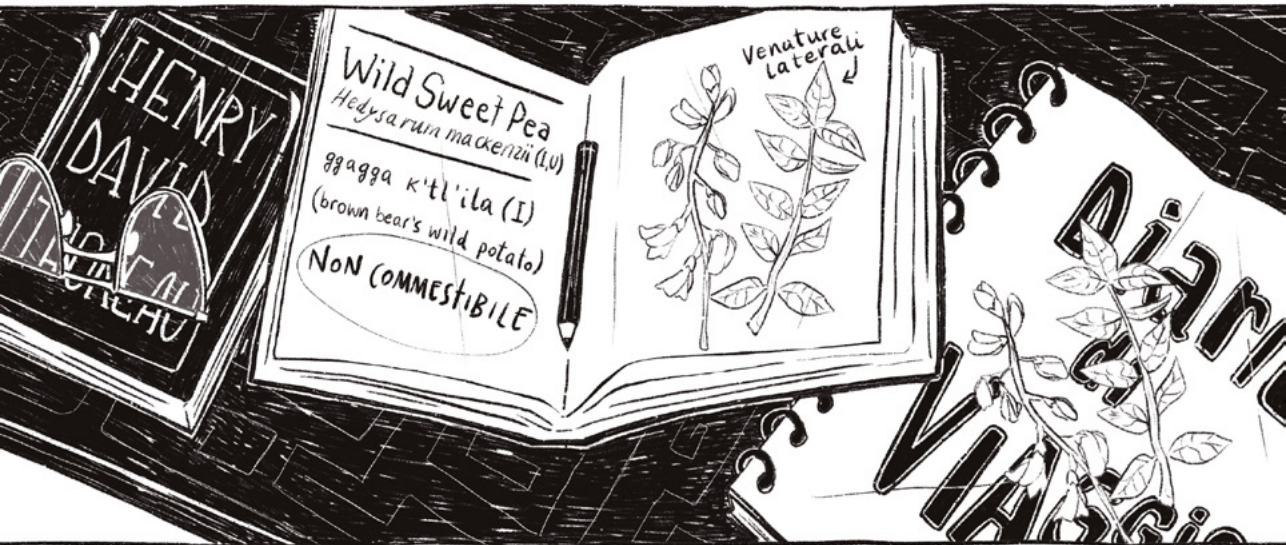 HENRY
DAVID
Wild Sweet Pea
Hedysarum mackenzii (I,U)
ggagga k'tl'ila (I)
(brown bear's wild potato)
NON COMMESTIBILE
Venature
laterali
Diario
di
VIAGGIO